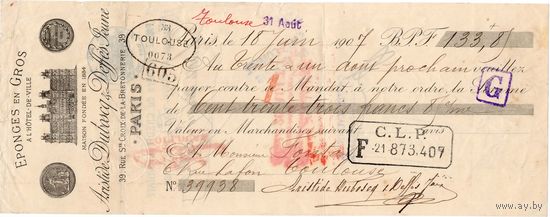 EPONGES EN GROS
A L'HÔTEL DE VILLE
MAISON FONDÉE EN 1814
Aristide Duboscq & Deffès Jeune
39, RUE Ste CROIX DE LA BRETONNERIE, 39
PARIS
TOULOUSE
0073
Toulouse 31 Août
Paris, le 18 Juin 1907 B.P.F. 133,8
Au trente un août prochain veuillez
payer contre ce Mandat, à notre ordre, la Somme
de Cent trente trois francs 8
G
Valeur en Marchandises suivant avis
C.L.P.
F 21-873.407
A Monsieur
Toulouse
No 39938
Aristide Duboscq & Deffès Jeune
www.ay.by